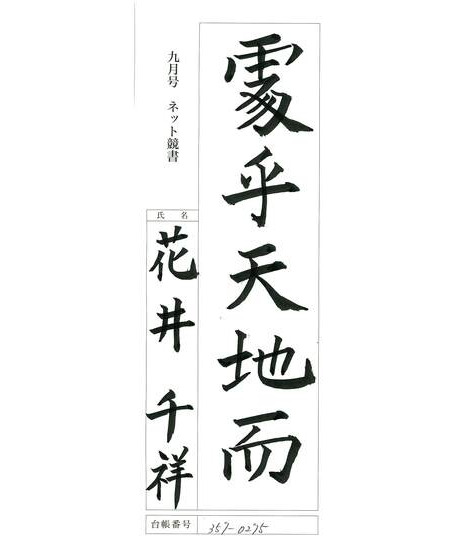 處乎天地而
九月号 ネット競書
氏名
花井 千祥
台帳番号 357-0275